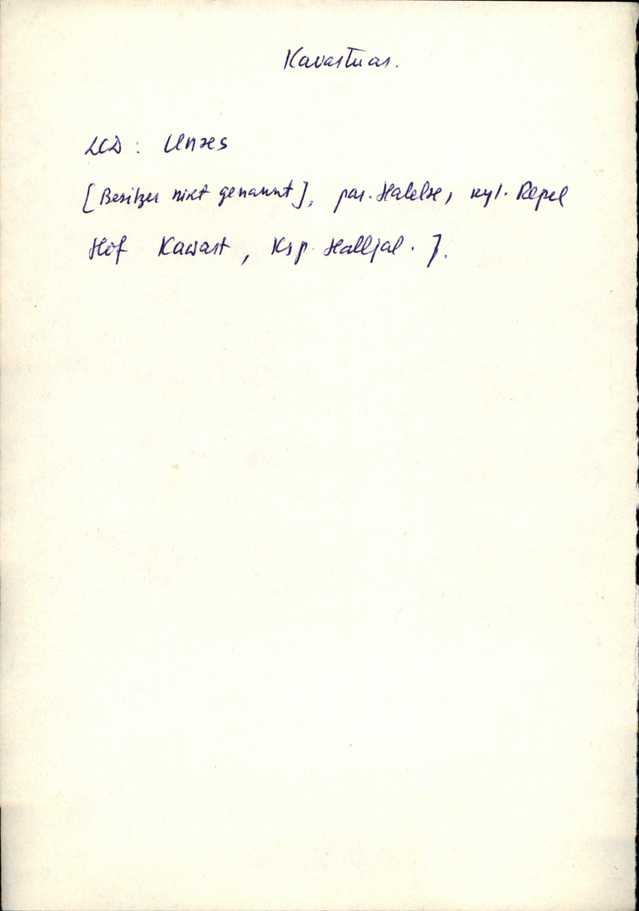 Kavastuas.
LCD: Unses
[Besitzer nicht genannt], par. Halelæ, kyl. Repel
Hof Kawast, Ksp. Halljal. ].